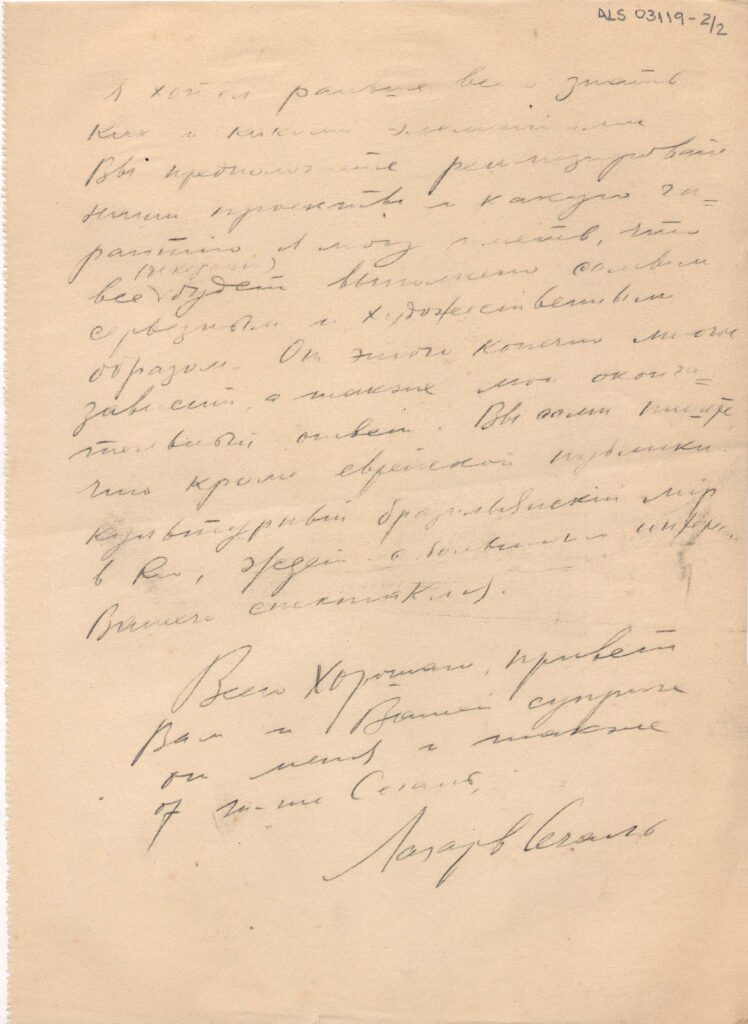 ALS 03119-2/2
Я хотел раньше всего знать
как и какими элементами
Вы предполагаете реализировать
наши проекты и какую га=
рантию я могу иметь, что
(декорации)
все будет выполнено самым
серьезным и художественным
образом. От этого конечно многое
зависит, а также мой оконча=
тельный ответ. Вы сами пишете,
что кроме еврейской публики
культурный бразильянский мір
в Rio, ждет с большим интересом
Вашего спектакля.
Всего Хорошаго, привет
Вам и Вашей супруге
от меня и также
от г-жи Сегаль,
Лазарь Сегаль